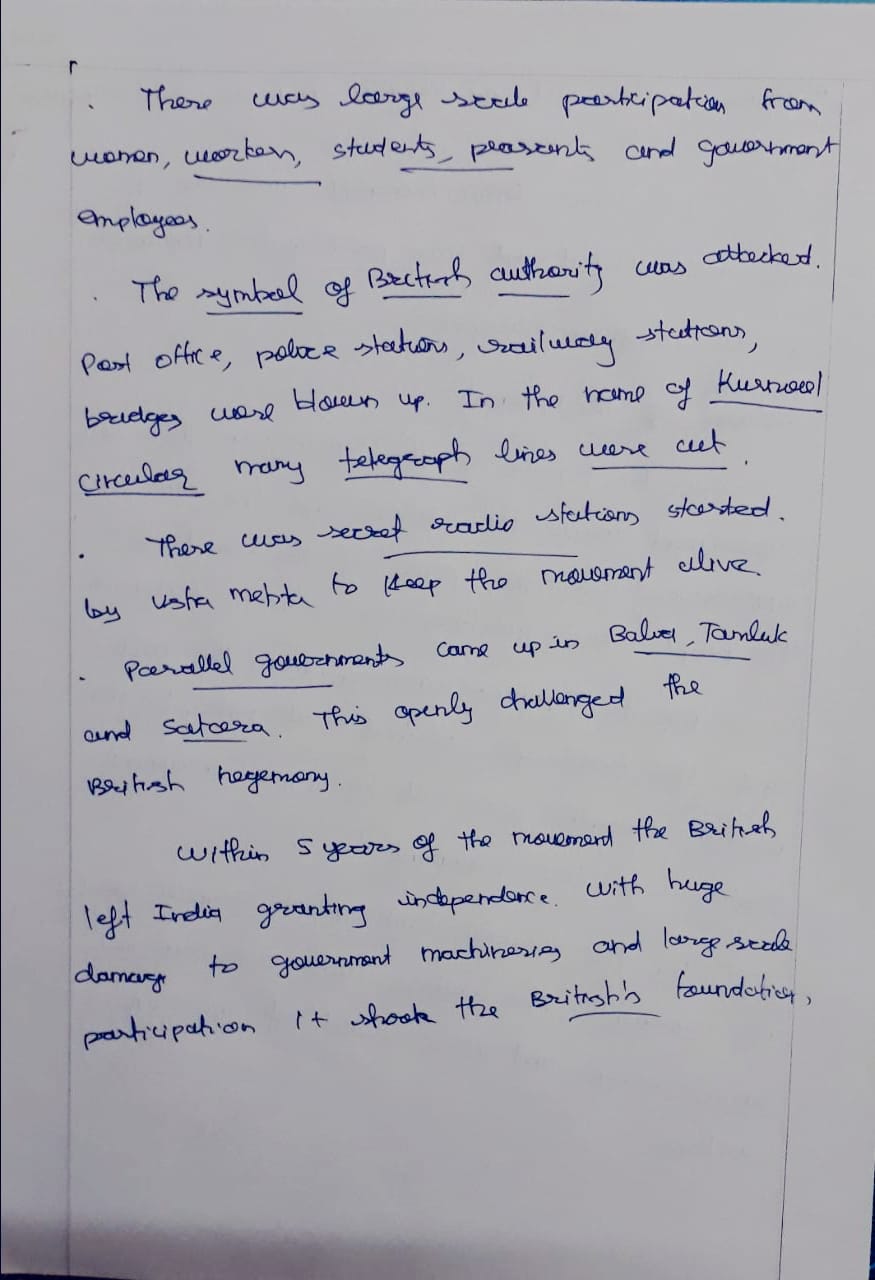 . There was large scale participation from
women, workers, students, peasants and government
employees.
. The symbol of British authority was attacked.
Post office, police stations, railway stations,
bridges were blown up. In the name of Kurnool
circular many telegraph lines were cut.
. There was secret radio stations started.
by Usha Mehta to keep the movement alive.
. Parallel governments came up in Balia, Tamluk
and Satara. This openly challenged the
British hegemony.
Within 5 years of the movement the British
left India granting independence. With huge
damage to government machineries and large scale
participation it shook the British's foundation,